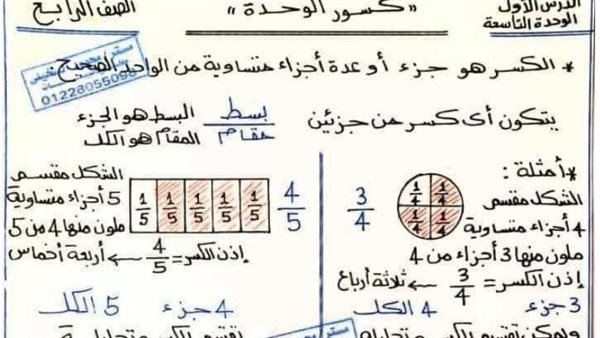 الدرس الأول
الوحدة التاسعة
"كسور الوحدة"
الصف الرابع
* الكسر هو جزء أو عدة أجزاء متساوية من الواحد الصحيح
01228055098
يتكون أى كسر من جزئين
بسط
مقام
البسط هو الجزء
المقام هو الكل
* أمثلة :
الشكل مقسم
4 أجزاء متساوية
ملون منها 3 أجزاء من 4
إذن الكسر = 3/4 ← ثلاثة أرباع
3 جزء 4 الكل
1/4 1/4 1/4 1/4
3/4
الشكل مقسم
5 أجزاء متساوية
ملون منها 4 من 5
إذن الكسر = 4/5 ← أربعة أخماس
4 جزء 5 الكل
1/5 1/5 1/5 1/5 1/5
4/5
ويمكن تقسيم الكسر وتحليله